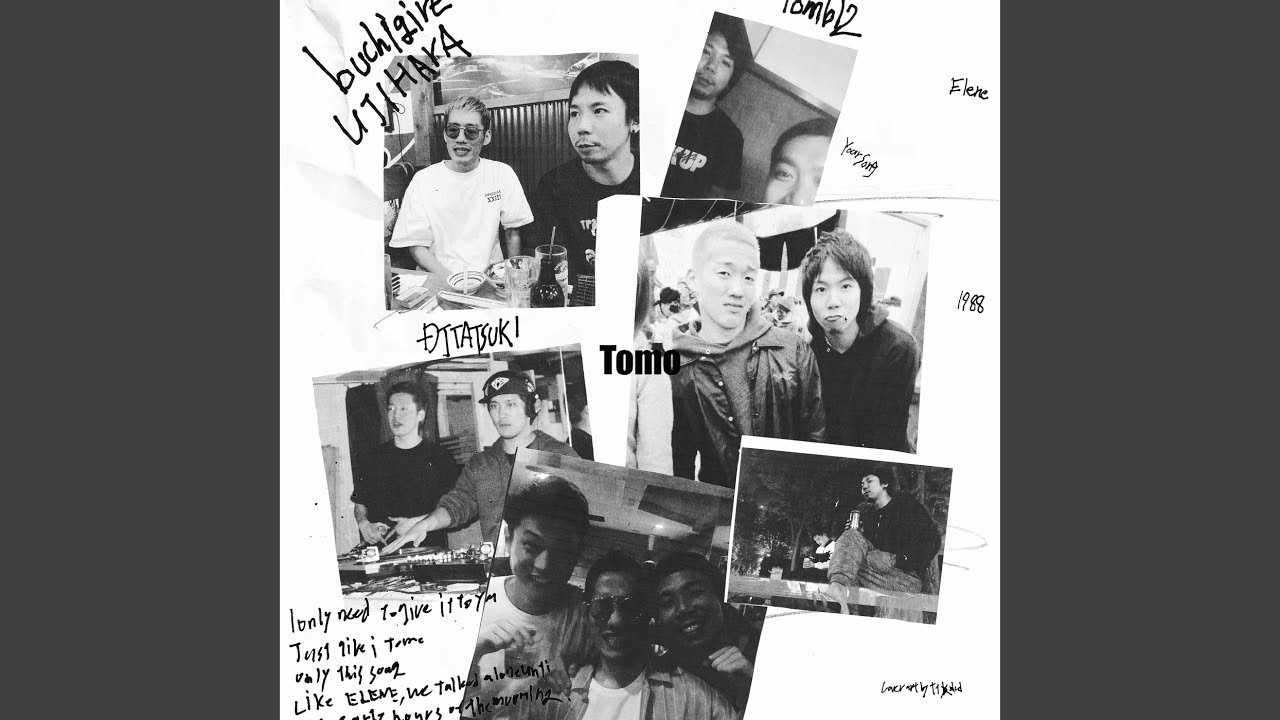 buchigire
UJIHARA
Tomb12
Elene
Your Song
UP
XXIII
1988
DJTATSUKI
Tomo
I only need to give it to you
Just like i
only this song
Like ELENE, we talked a
hours of the morning.
Cover art by